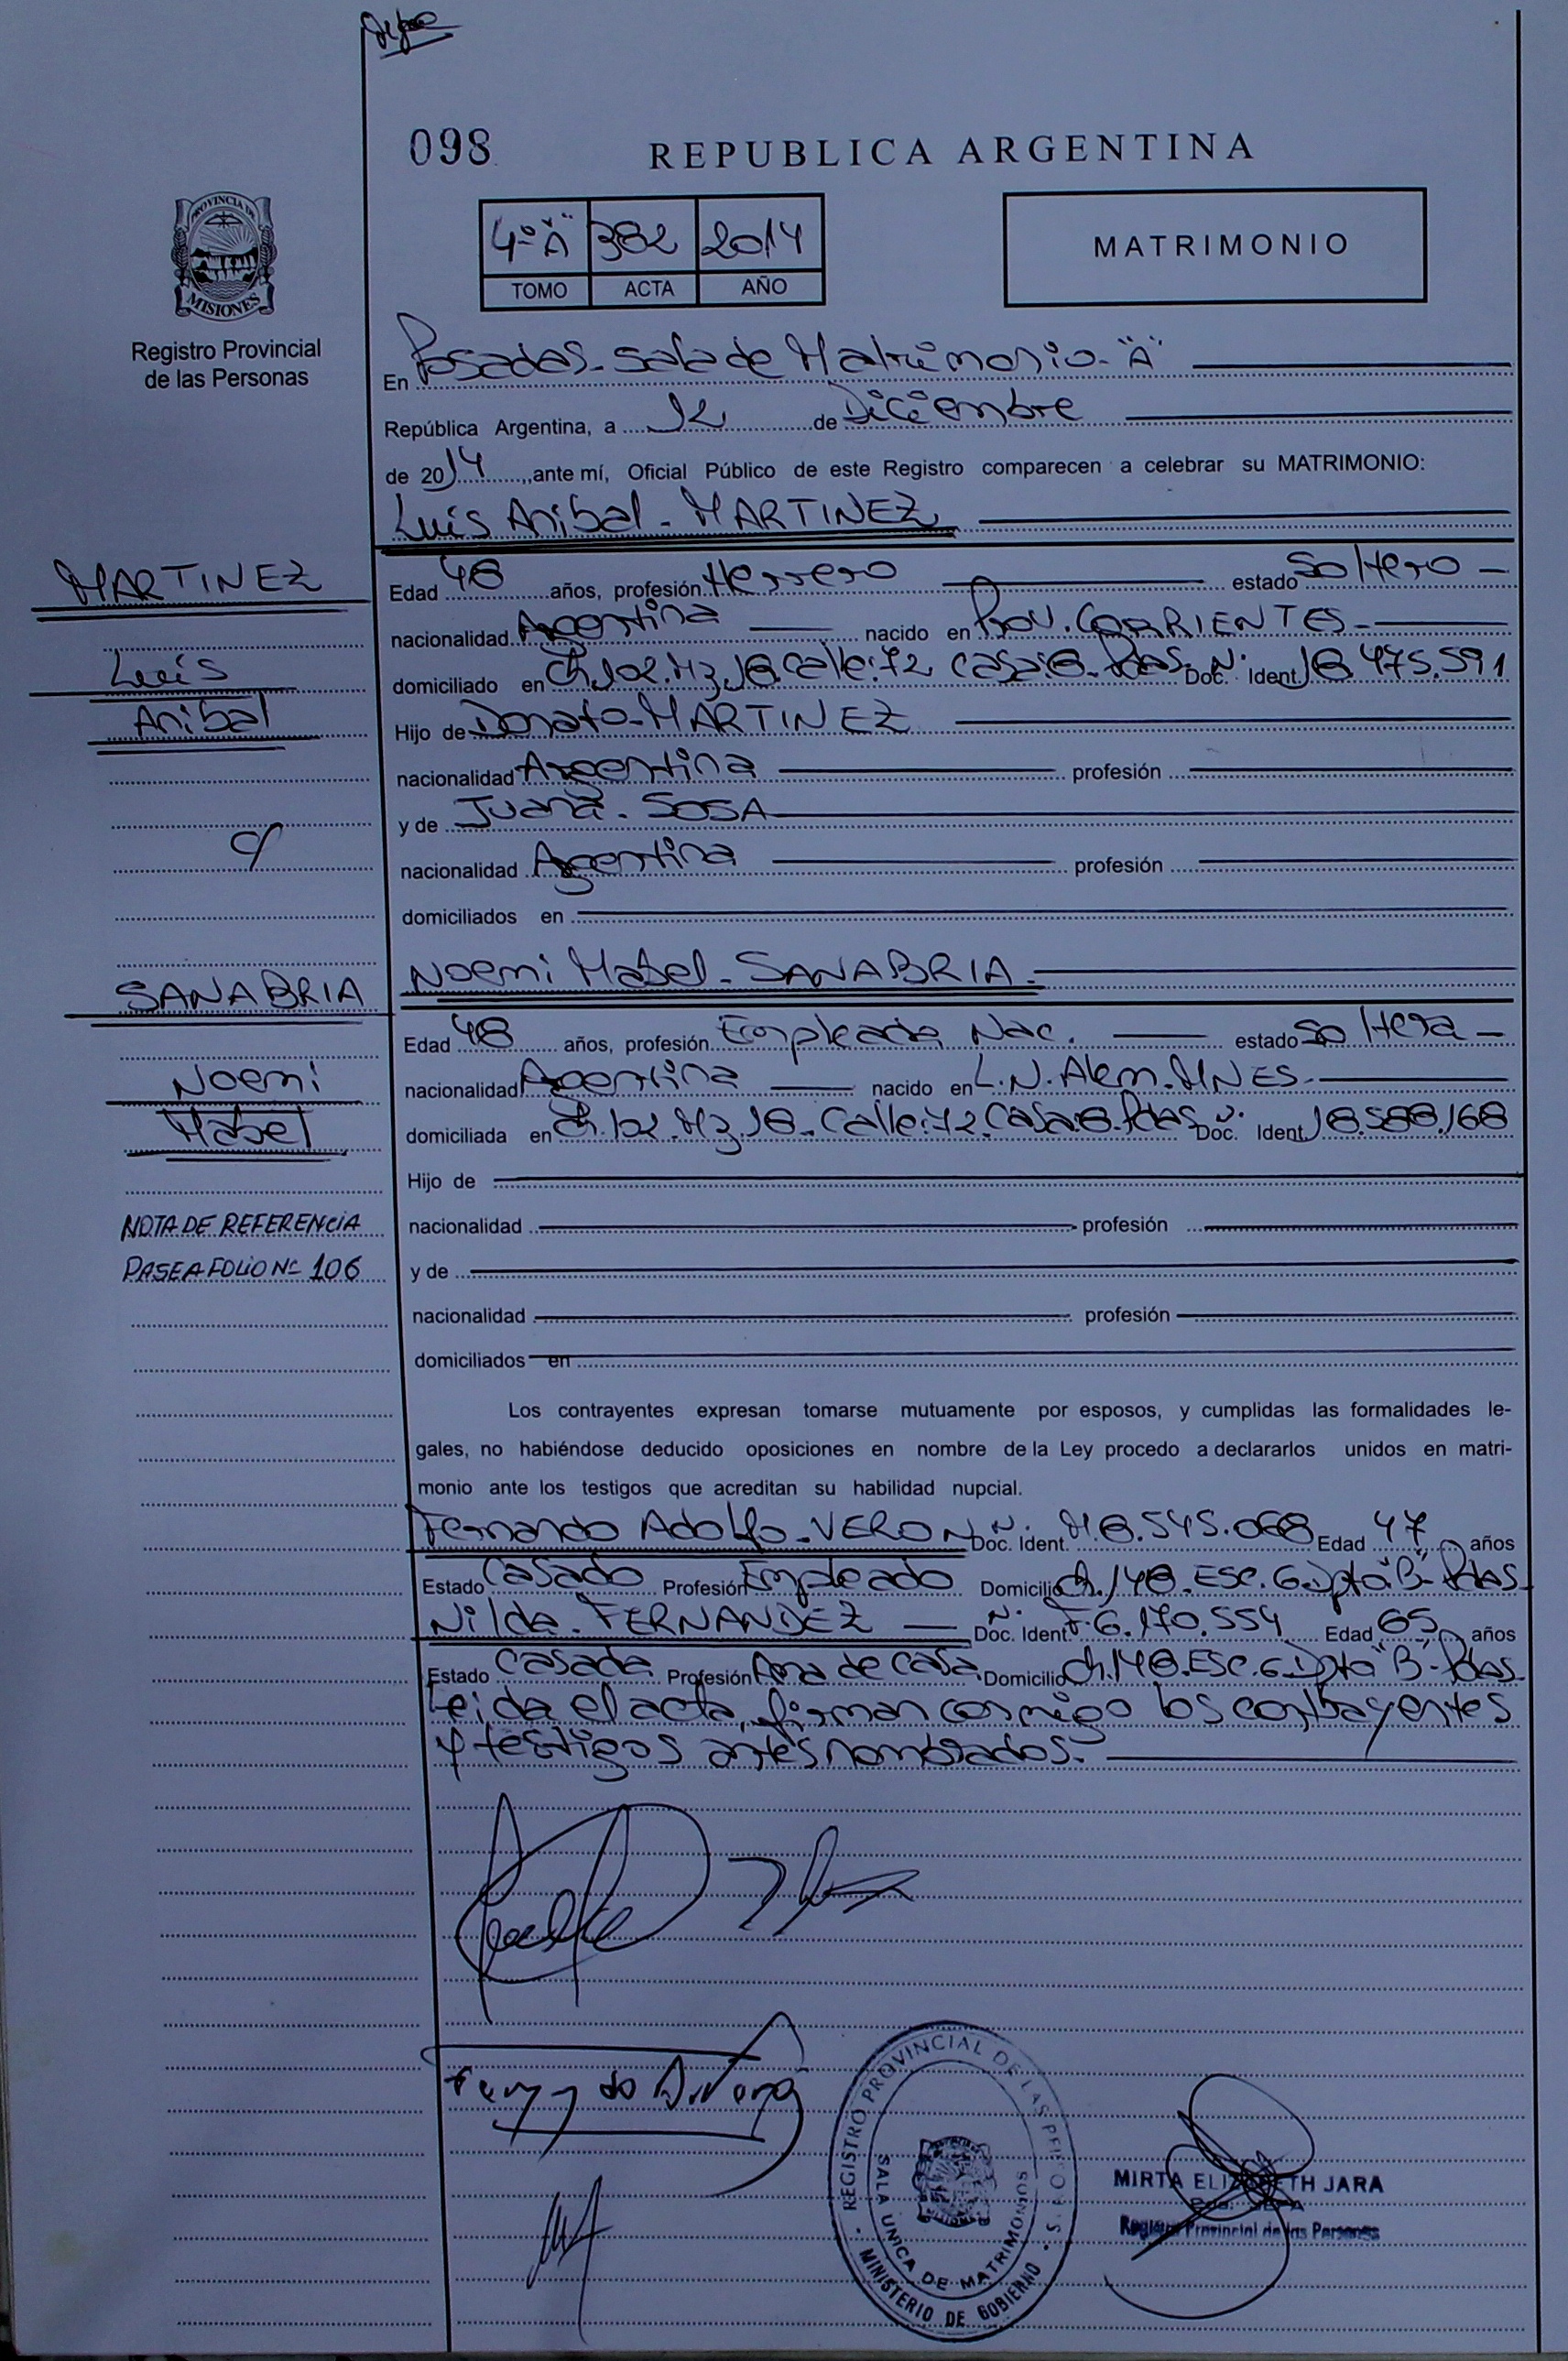 098
REPUBLICA ARGENTINA
PROVINCIA DE
MISIONES
Registro Provincial
de las Personas
4º "A" 382 2014
TOMO ACTA AÑO
MATRIMONIO
En Posadas - Sala de Matrimonio - "A"
República Argentina, a 12 de Diciembre
de 2014, ante mí, Oficial Público de este Registro comparecen a celebrar su MATRIMONIO:
Luis Anibal - MARTINEZ
MARTINEZ
Luis
Anibal
c/
SANABRIA
Noemi
Mabel
NOTA DE REFERENCIA
PASE A FOLIO Nº 106
Edad 48 años, profesión Herrero estado Soltero -
nacionalidad Argentina nacido en Prov. CORRIENTES -
domiciliado en Ch. 102. Mz. 18. Calle: 72 Casa: 8. Pdas Doc. Nº Ident. 18.475.591
Hijo de Donato - MARTINEZ
nacionalidad Argentina profesión
y de Juana - SOSA
nacionalidad Argentina profesión
domiciliados en
Noemi Mabel - SANABRIA -
Edad 48 años, profesión Empleada Nac. estado Soltera -
nacionalidad Argentina nacido en L.N. Alem. MNES -
domiciliada en Ch. 102. Mz. 18. Calle: 72. Casa: 8. Pdas Doc. Nº Ident. 18.588.168
Hijo de
nacionalidad profesión
y de
nacionalidad profesión
domiciliados en
Los contrayentes expresan tomarse mutuamente por esposos, y cumplidas las formalidades le-
gales, no habiéndose deducido oposiciones en nombre de la Ley procedo a declararlos unidos en matri-
monio ante los testigos que acreditan su habilidad nupcial.
Fernando Adolfo - VERON Doc. Nº Ident. M.8.545.068 Edad 47 años
Estado Casado Profesión Empleado Domicilio Ch. 148. ESC. 6 Dpto "B" - Pdas
Nilda - FERNANDEZ Doc. Nº Ident. F.6.170.554 Edad 65 años
Estado Casada Profesión Ama de casa Domicilio Ch. 148. ESC. 6 Dpto "B" - Pdas
Leida el acta, firman conmigo los contrayentes
y testigos antes nombrados.
REGISTRO PROVINCIAL DE LAS PERSONAS
MINISTERIO DE GOBIERNO
SALA UNICA DE MATRIMONIOS
MIRTA ELIZABETH JARA
Registro Provincial de las Personas